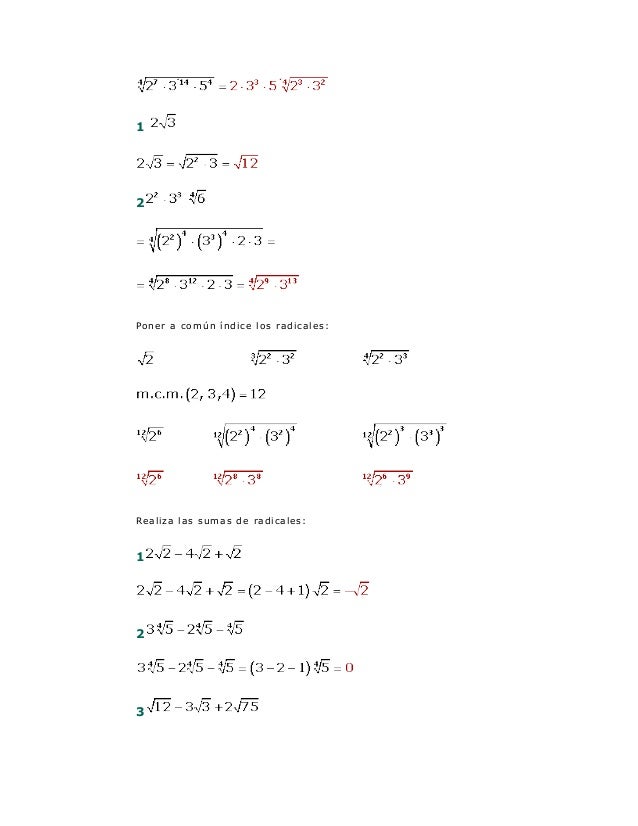 ⁴√(2⁷ · 3¹⁴ · 5⁴) = 2 · 3³ · 5 ⁴√(2³ · 3²)
1 2√3
2√3 = √(2² · 3) = √12
2 2² · 3³ ⁴√6
= ⁴√((2²)⁴ · (3³)⁴ · 2 · 3) =
= ⁴√(2⁸ · 3¹² · 2 · 3) = ⁴√(2⁹ · 3¹³)
Poner a común índice los radicales:
√2 ³√(2² · 3²) ⁴√(2² · 3³)
m.c.m.(2, 3, 4) = 12
¹²√2⁶ ¹²√((2²)⁴ · (3²)⁴) ¹²√((2²)³ · (3³)³)
¹²√2⁶ ¹²√(2⁸ · 3⁸) ¹²√(2⁶ · 3⁹)
Realiza las sumas de radicales:
1 2√2 − 4√2 + √2
2√2 − 4√2 + √2 = (2 − 4 + 1) √2 = −√2
2 3⁴√5 − 2⁴√5 − ⁴√5
3⁴√5 − 2⁴√5 − ⁴√5 = (3 − 2 − 1) ⁴√5 = 0
3 √12 − 3√3 + 2√75